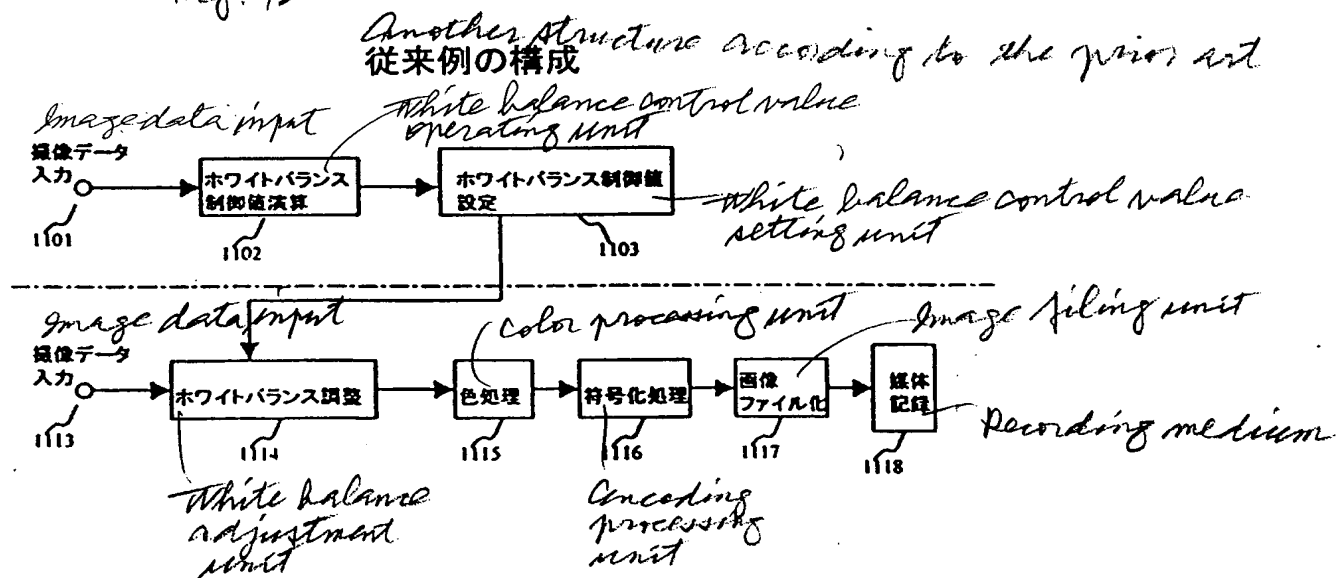 Another structure according to the prior art
従来例の構成
Image data input
White balance control value
operating unit
撮像データ
入力
ホワイトバランス
制御値演算
ホワイトバランス制御値
設定
White balance control value
setting unit
1101
1102
1103
Image data input
color processing unit
Image filing unit
撮像データ
入力
ホワイトバランス調整
色処理
符号化処理
画像
ファイル化
媒体
記録
Recording medium
1113
1114
1115
1116
1117
1118
White balance
adjustment
unit
encoding
processing
unit